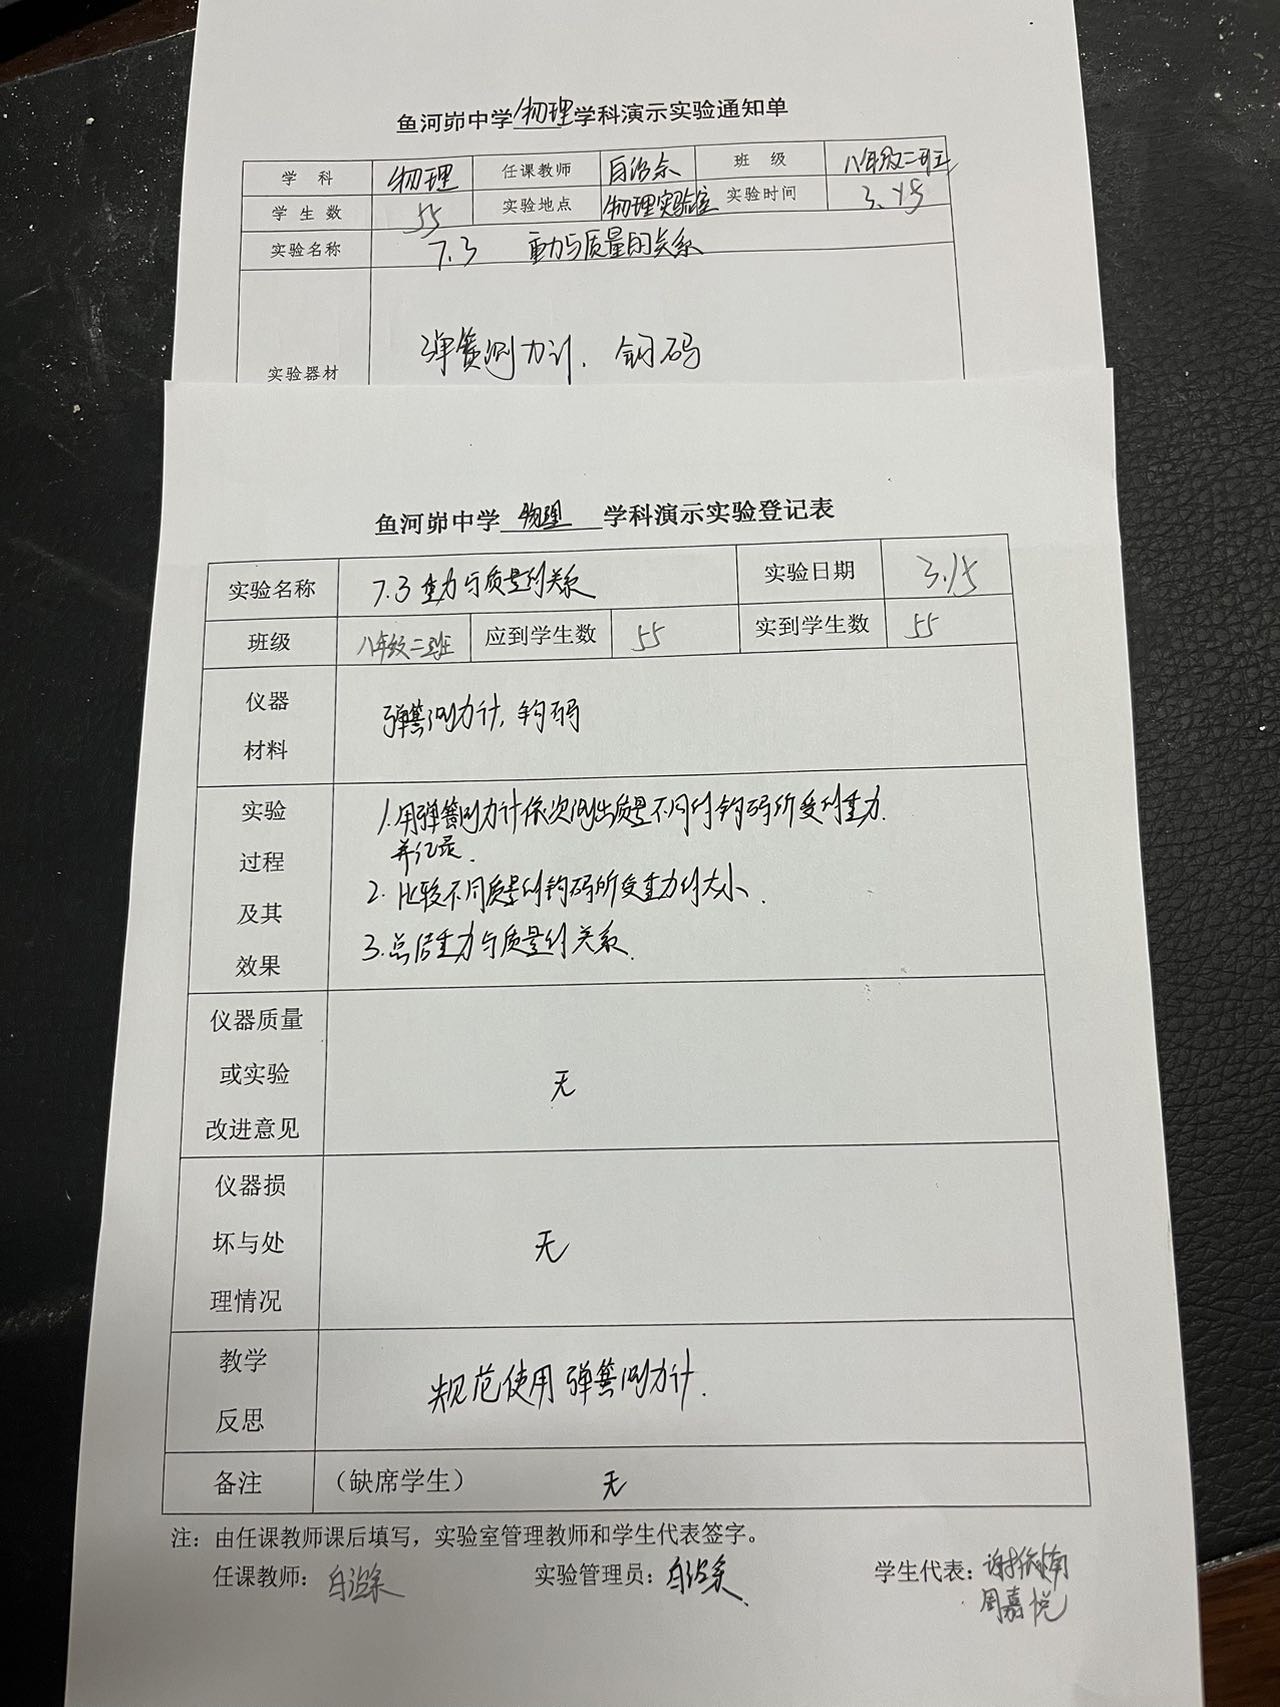 鱼河峁中学物理学科演示实验通知单
学 科 物理 任课教师 白治余 班 级 八年级二班
学 生 数 55 实验地点 物理实验室 实验时间 3.15
实验名称 7.3 重力与质量的关系
实验器材 弹簧测力计. 钩码
鱼河峁中学 物理 学科演示实验登记表
实验名称 7.3重力与质量的关系 实验日期 3.15
班级 八年级二班 应到学生数 55 实到学生数 55
仪器
材料
弹簧测力计, 钩码
实验
过程
及其
效果
1.用弹簧测力计依次测出质量不同的钩码所受的重力.
并记录.
2. 比较不同质量的钩码所受重力的大小.
3.总结重力与质量的关系.
仪器质量
或实验
改进意见
无
仪器损
坏与处
理情况
无
教学
反思
规范使用弹簧测力计.
备注 （缺席学生） 无
注：由任课教师课后填写，实验室管理教师和学生代表签字。
任课教师：白治余 实验管理员：白治余 学生代表：
周嘉悦